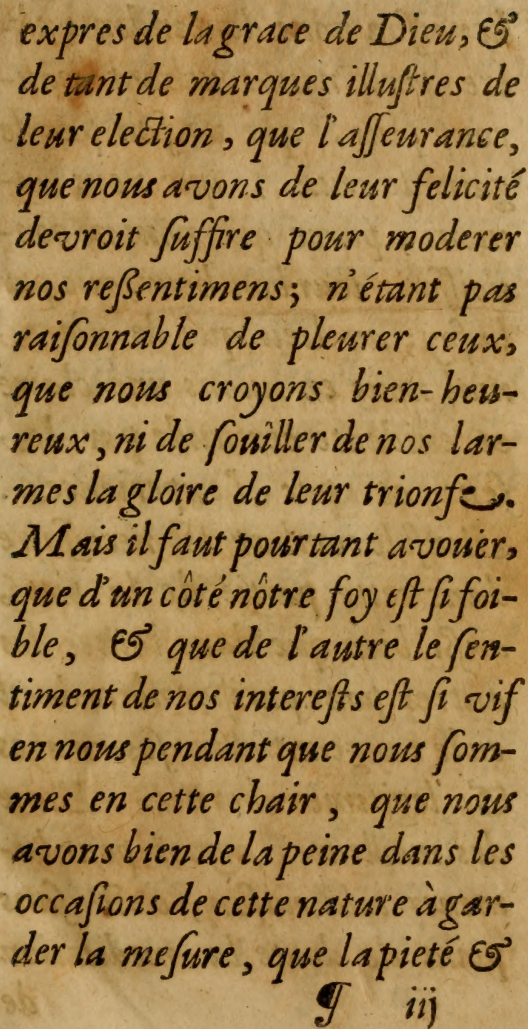 expres de la grace de Dieu, &
de tant de marques illuſtres de
leur election, que l'aſſeurance,
que nous avons de leur felicité
devroit ſuffire pour moderer
nos reßentimens; n'étant pas
raiſonnable de pleurer ceux,
que nous croyons bien-heu-
reux, ni de ſouïller de nos lar-
mes la gloire de leur trionfe.
Mais il faut pourtant avouër,
que d'un côté nôtre foy eſt ſi foi-
ble, & que de l'autre le ſen-
timent de nos intereſts eſt ſi vif
en nous pendant que nous ſom-
mes en cette chair, que nous
avons bien de la peine dans les
occaſions de cette nature à gar-
der la meſure, que la pieté &
¶ iij